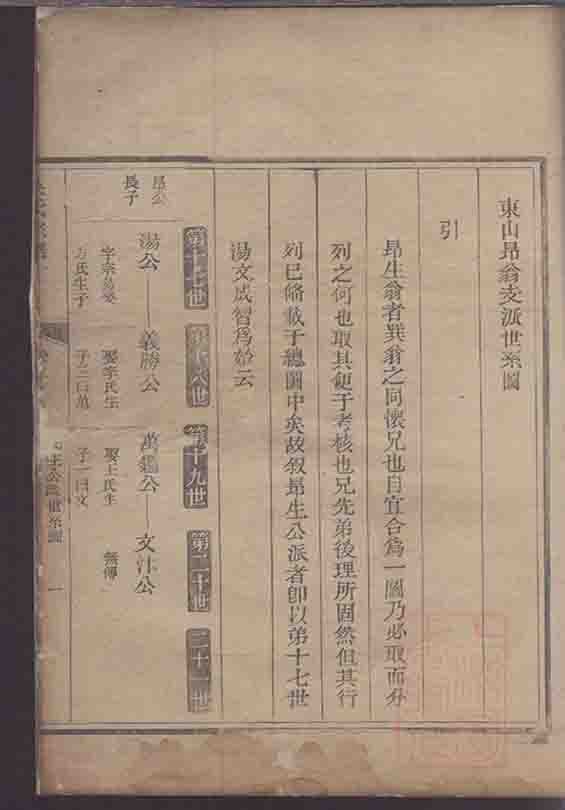 東山昻翁支派世系圖
引
昻生翁者巽翁之同懷兄也自宜合爲一圖乃必取而分
列之何也取其便于考核也兄先弟後理所固然但其行
列已俻載于總圖中矣故叙昻生公派者卽以第十七世
湯文成習爲始云
第十七世
第十八世
第十九世
第二十世
二十一世
昻公長子
湯公
義勝公
萬鑑公
文汴公
方氏生子
娶李氏生
娶王氏生
子一曰文
無傳
公派世系圖
一